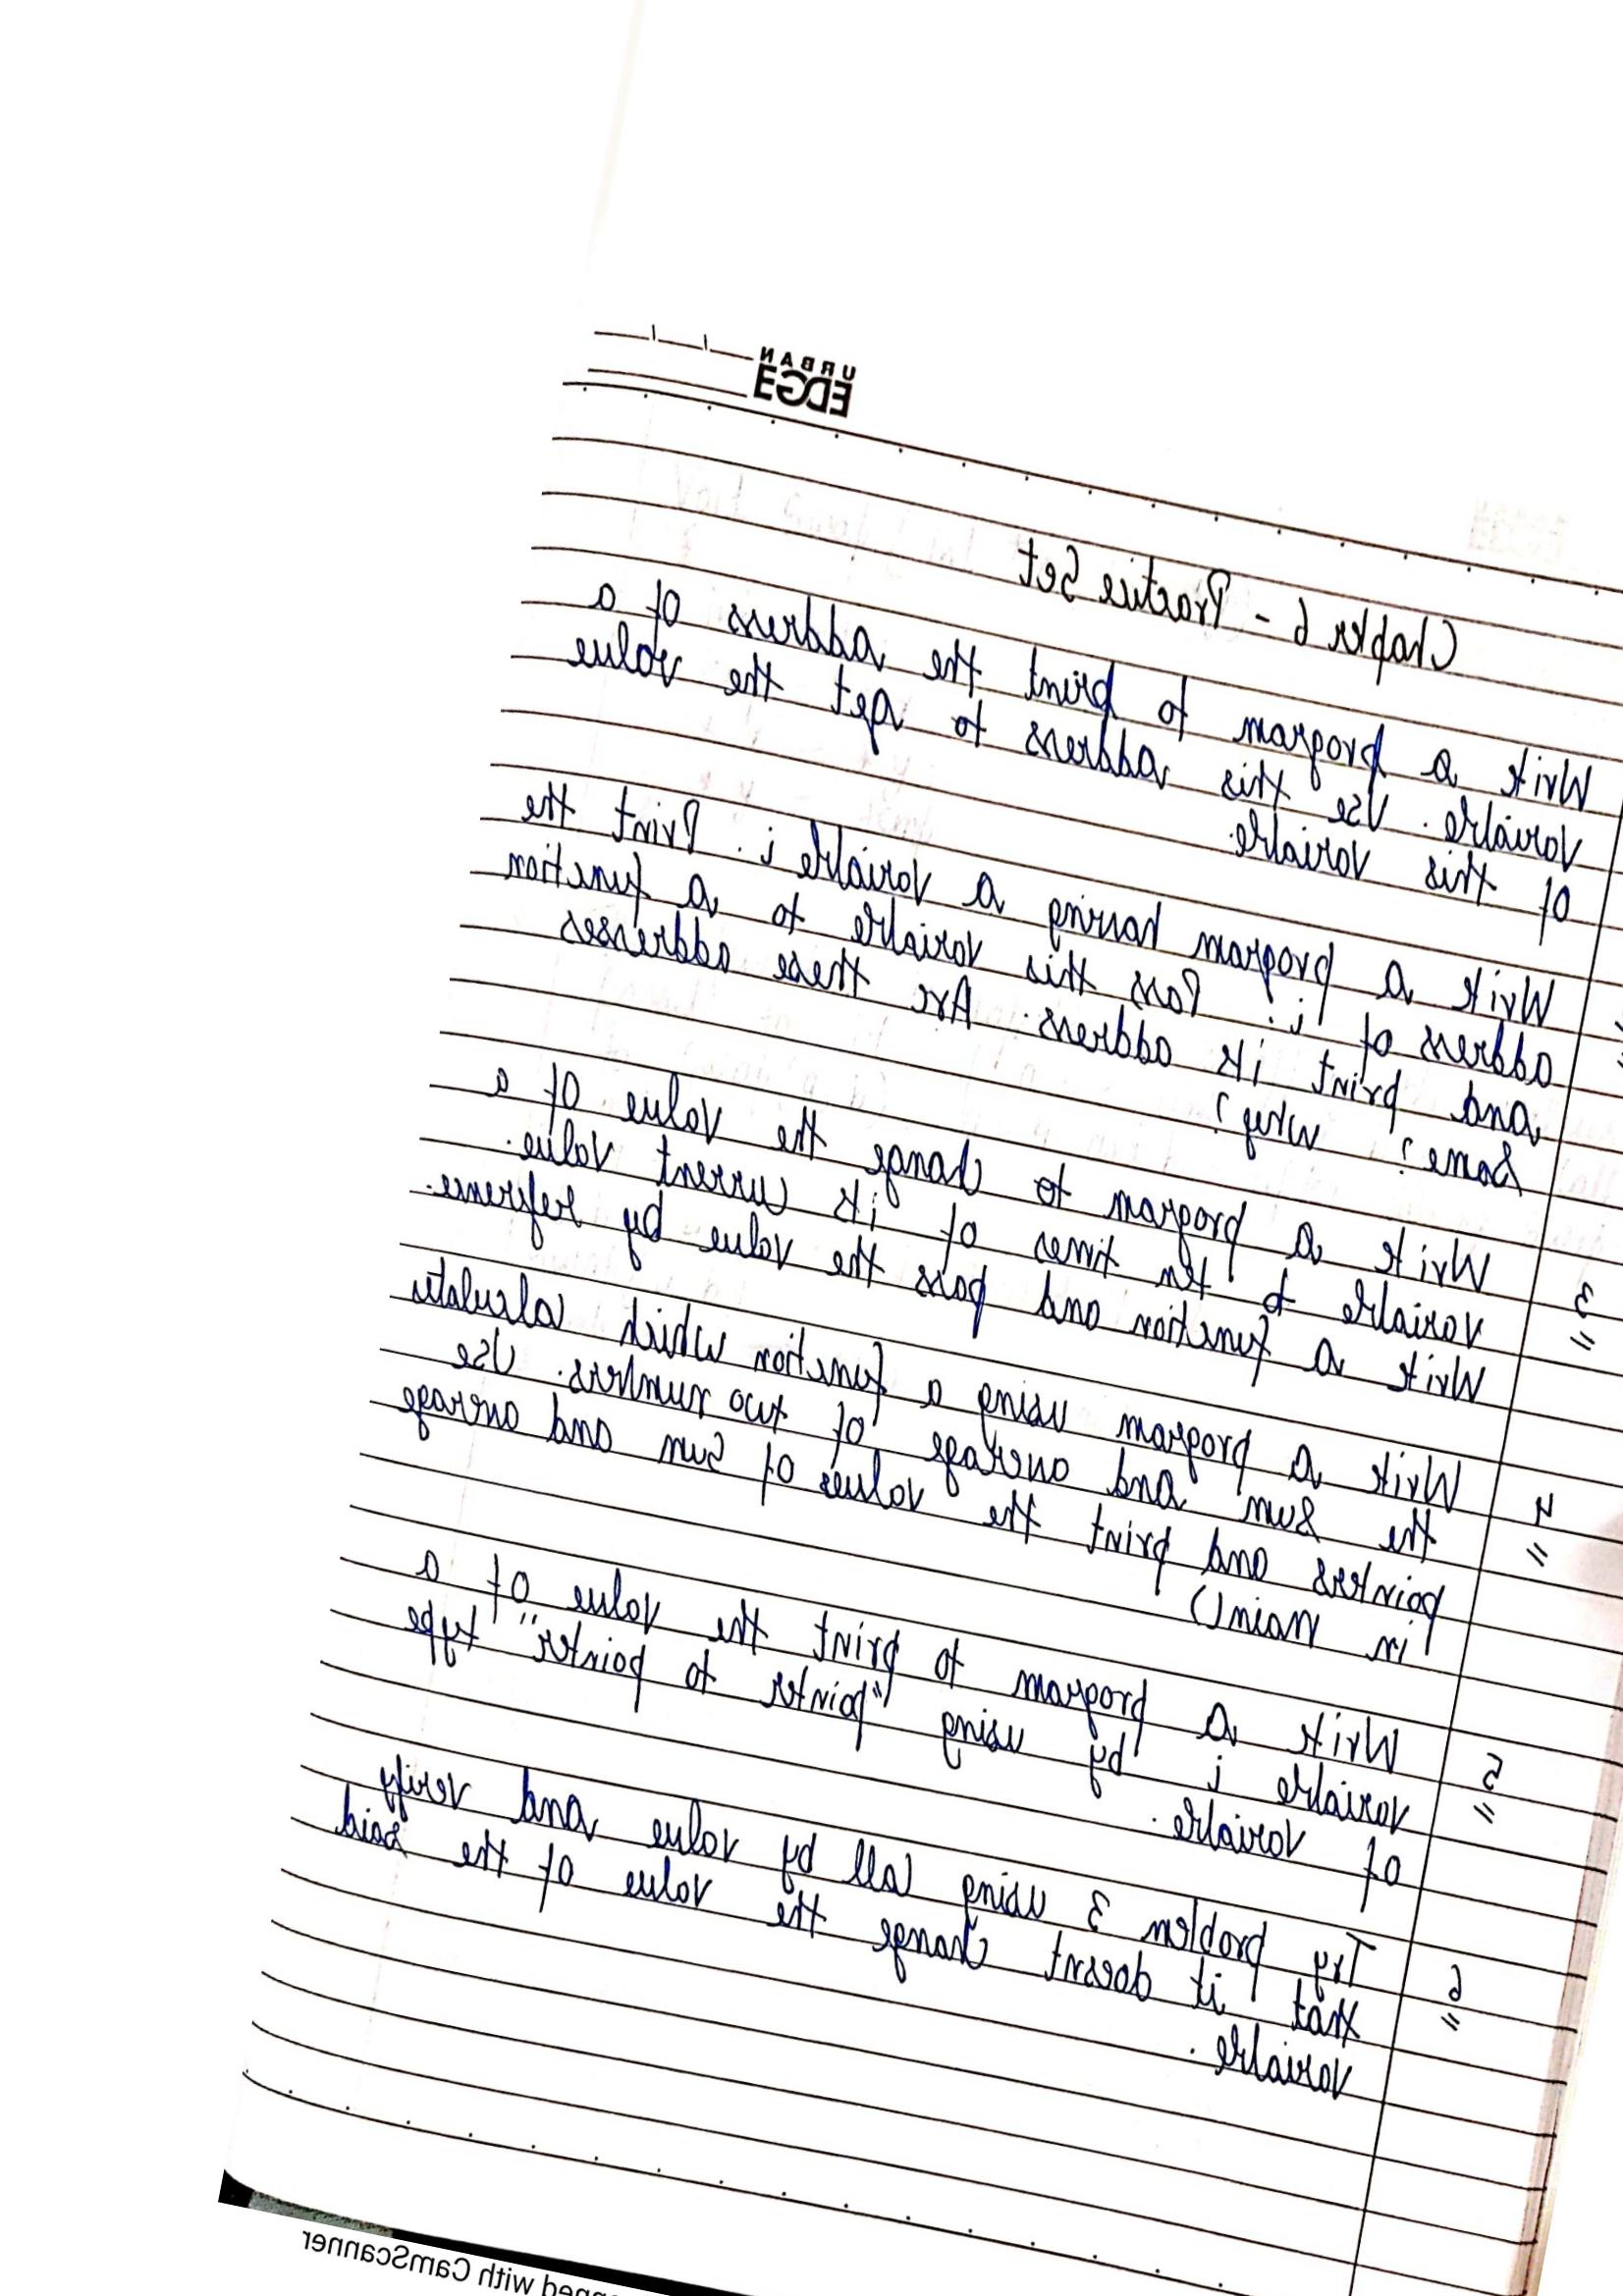 URBAN
EDGE
Chapter 6 - Practice Set
Write a program to print the address of a
variable. Use this address to get the value
of this variable.
Write a program having a variable i. Print the
address of i. Pass this variable to a function
and print its address. Are these addresses
same? why?
3 Write a program to change the value of a
variable to ten times of its current value.
Write a function and pass the value by reference.
4 Write a program using a function which calculates
the sum and average of two numbers. Use
pointers and print the values of sum and average
in main()
5 Write a program to print the value of a
variable i by using "pointer to pointer" type
of variable.
6 Try problem 3 using call by value and verify
that it doesnt change the value of the said
variable.
with CamScanner